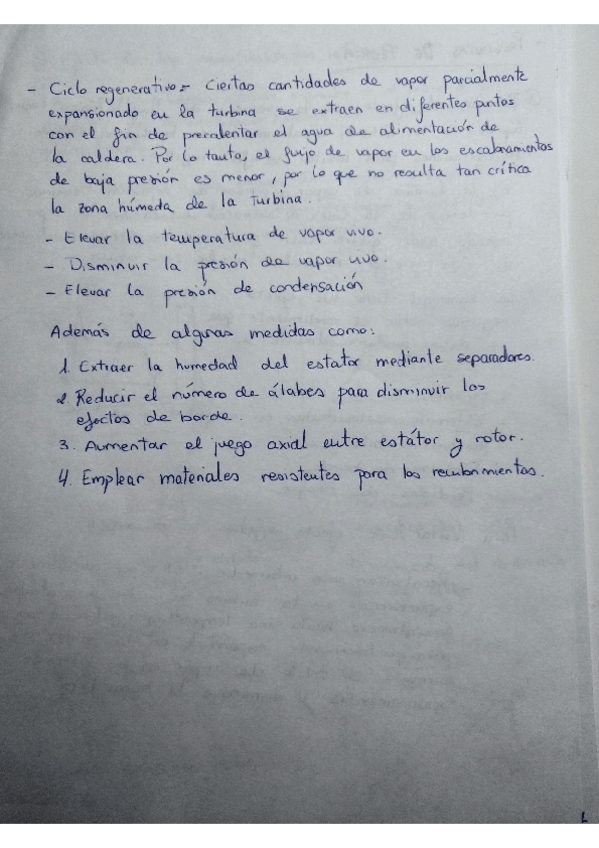 - Ciclo regenerativo:- Ciertas cantidades de vapor parcialmente
expansionado en la turbina se extraen en diferentes puntos
con el fin de precalentar el agua de alimentación de
la caldera. Por lo tanto, el flujo de vapor en los escalonamientos
de baja presión es menor, por lo que no resulta tan crítica
la zona húmeda de la turbina.
- Elevar la temperatura de vapor vivo.
- Disminuir la presión de vapor vivo.
- Elevar la presión de condensación
Además de algunas medidas como:
1. Extraer la humedad del estator mediante separadores.
2. Reducir el número de álabes para disminuir los
efectos de borde.
3. Aumentar el juego axial entre estátor y rotor.
4. Emplear materiales resistentes para los recubrimientos.